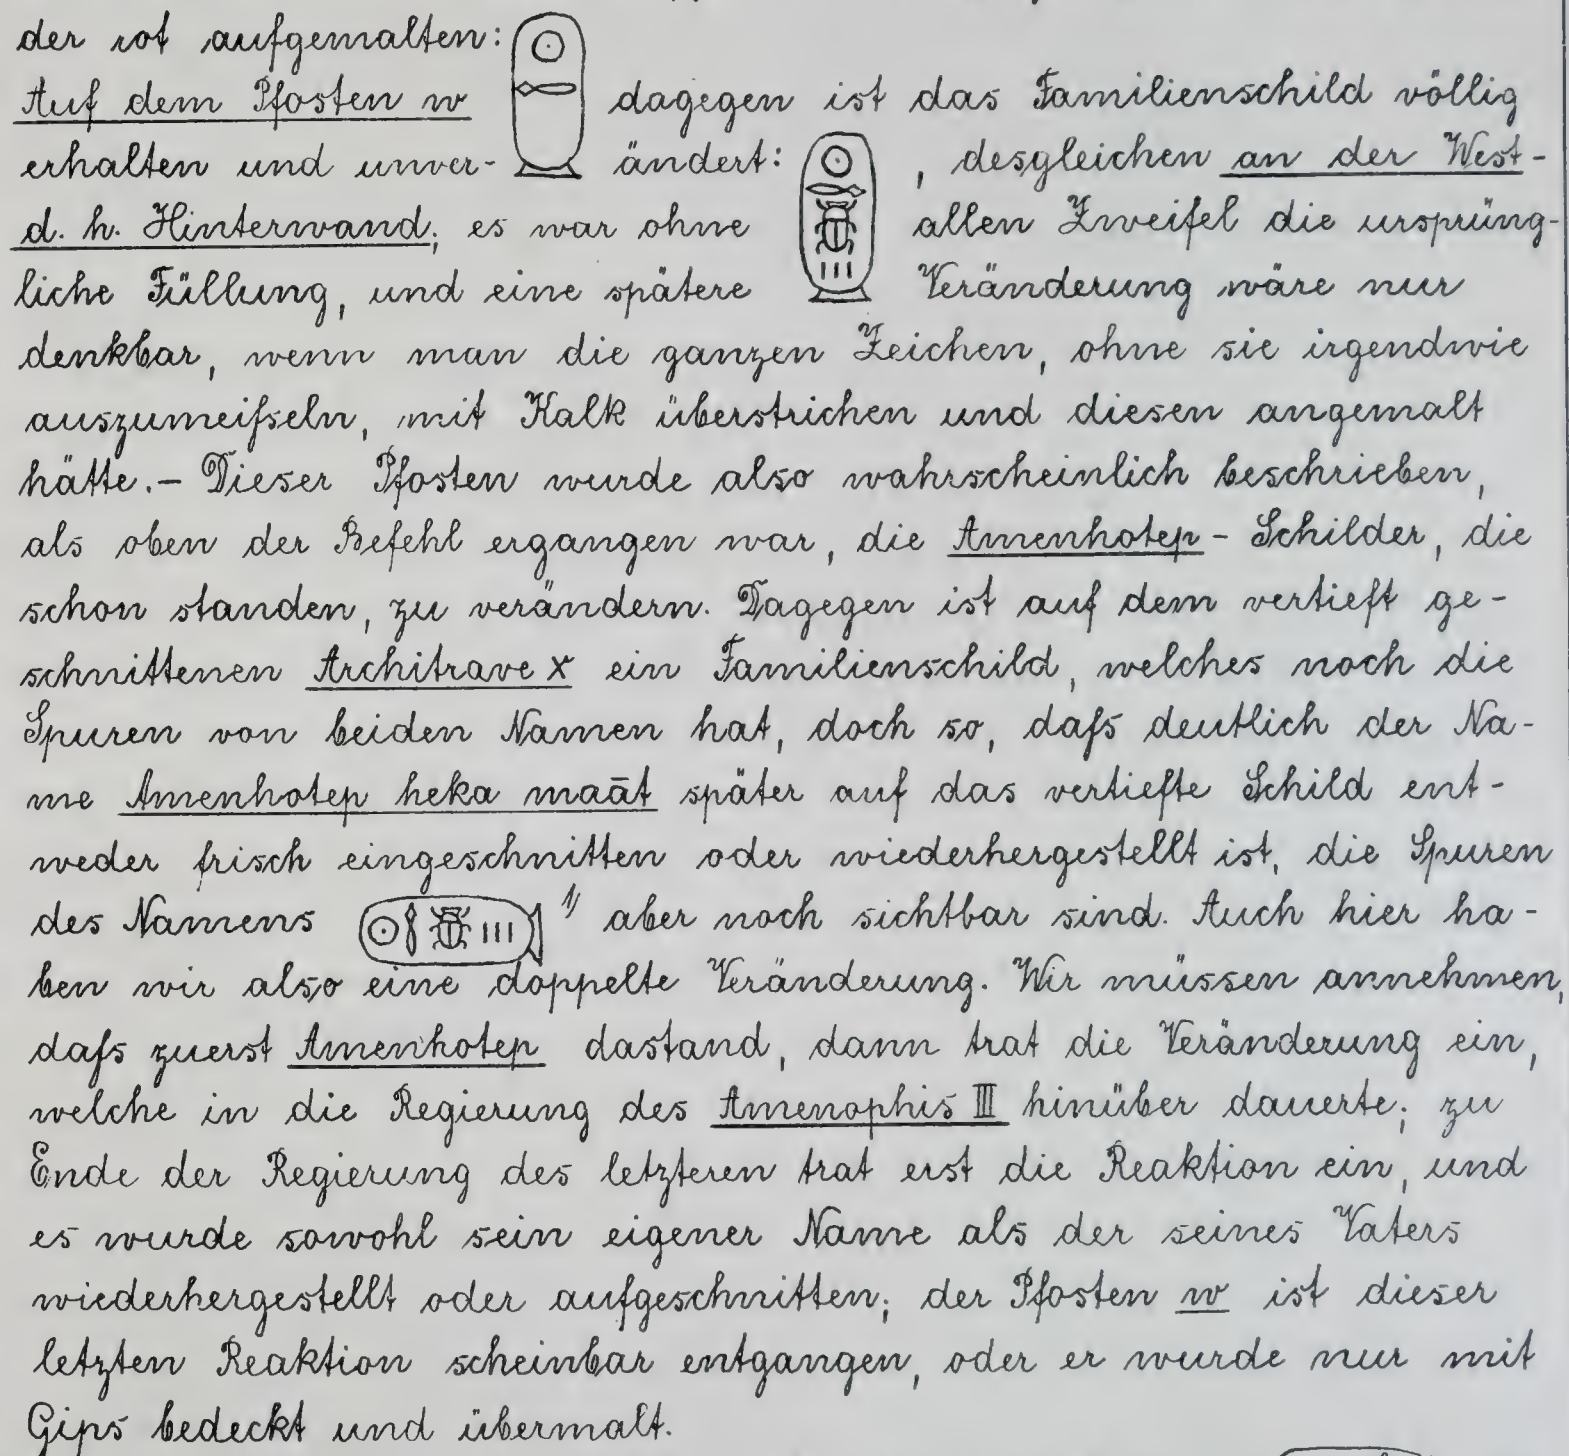 der rot aufgemalten:
Auf dem Pfosten w dagegen ist das Familienschild völlig
erhalten und unver- ändert: , desgleichen an der West-
d. h. Hinterwand; es war ohne allen Zweifel die ursprüng-
liche Füllung, und eine spätere Veränderung wäre nur
denkbar, wenn man die ganzen Zeichen, ohne sie irgendwie
auszumeifseln, mit Kalk überstrichen und diesen angemalt
hätte.– Dieser Pfosten wurde also wahrscheinlich beschrieben,
als oben der Befehl ergangen war, die Amenhotep- Schilder, die
schon standen, zu verändern. Dagegen ist auf dem vertieft ge-
schnittenen Architrave x ein Familienschild, welches noch die
Spuren von beiden Namen hat, doch so, dafs deutlich der Na-
me Amenhotep heka maāt später auf das vertiefte Schild ent-
weder frisch eingeschnitten oder wiederhergestellt ist, die Spuren
des Namens 1) aber noch sichtbar sind. Auch hier ha-
ben wir also eine doppelte Veränderung. Wir müssen annehmen,
dafs zuerst Amenhotep dastand, dann trat die Veränderung ein,
welche in die Regierung des Amenophis III hinüber dauerte; zu
Ende der Regierung des letzteren trat erst die Reaktion ein, und
es wurde sowohl sein eigener Name als der seines Vaters
wiederhergestellt oder aufgeschnitten; der Pfosten w ist dieser
letzten Reaktion scheinbar entgangen, oder er wurde nur mit
Gips bedeckt und übermalt.